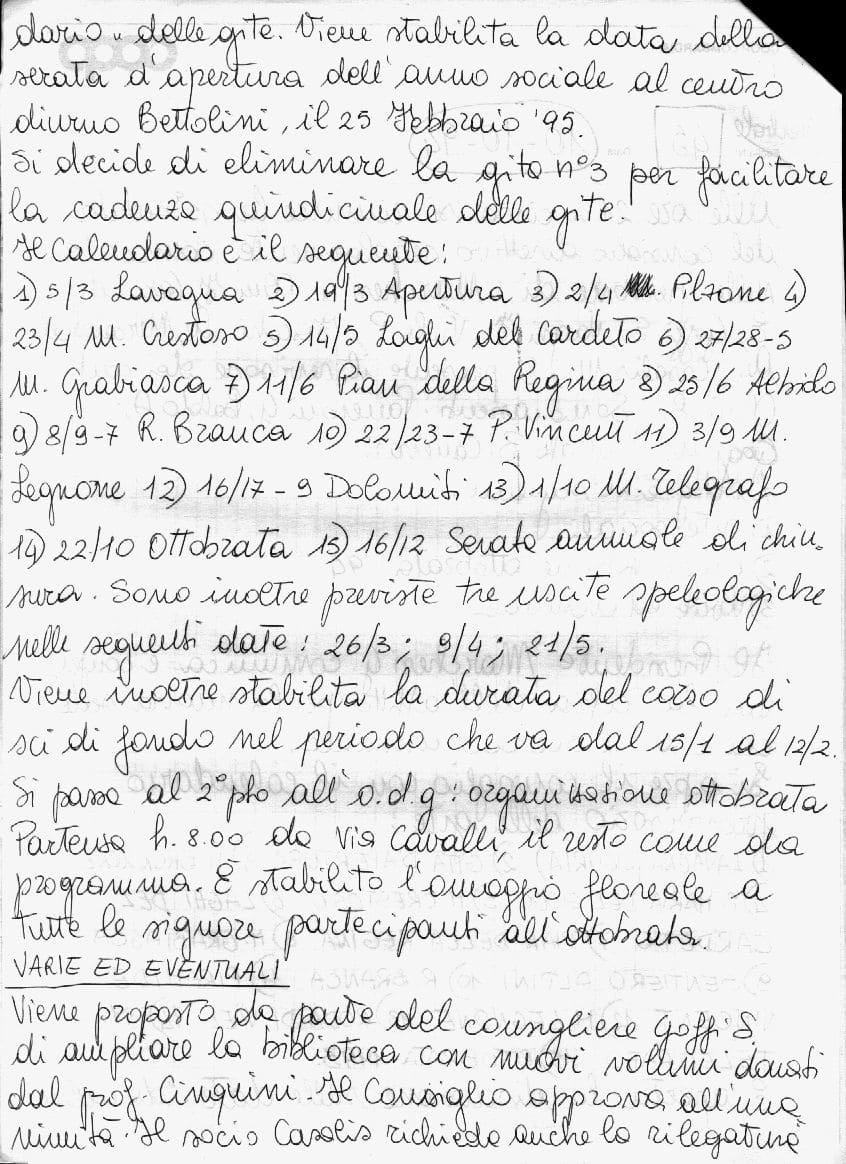 dario" delle gite. Viene stabilita la data della
serata d'apertura dell'anno sociale al centro
diurno Bettolini, il 25 Febbraio '95.
Si decide di eliminare la gita n°3 per facilitare
la cadenza quindicinale delle gite.
Il Calendario è il seguente:
1) 5/3 Lavagna 2) 19/3 Apertura 3) 2/4 Pilzone 4)
23/4 M. Crestoso 5) 14/5 Laghi del Cardeto 6) 27/28-5
M. Grabiasca 7) 11/6 Pian della Regina 8) 25/6 Albiolo
9) 8/9-7 R. Branca 10) 22/23-7 P. Vincent 11) 3/9 M.
Legnone 12) 16/17-9 Dolomiti 13) 1/10 M. Telegrafo
14) 22/10 Ottobrata 15) 16/12 Serata annuale di chiu-
sura. Sono inoltre previste tre uscite speleologiche
nelle seguenti date: 26/3; 9/4; 21/5.
Viene inoltre stabilita la durata del corso di
sci di fondo nel periodo che va dal 15/1 al 12/2.
Si passa al 2° pto all'o.d.g: organizzazione ottobrata
Partenza h. 8.00 da Via Cavalli, il resto come da
programma. È stabilito l'omaggio floreale a
tutte le signore partecipanti all'ottobrata.
VARIE ED EVENTUALI
Viene proposto da parte del consigliere Goffi S.
di ampliare la biblioteca con nuovi volumi donati
dal prof. Cinquini. Il Consiglio approva all'una
nimità. Il socio Casalis richiede anche la rilegatura